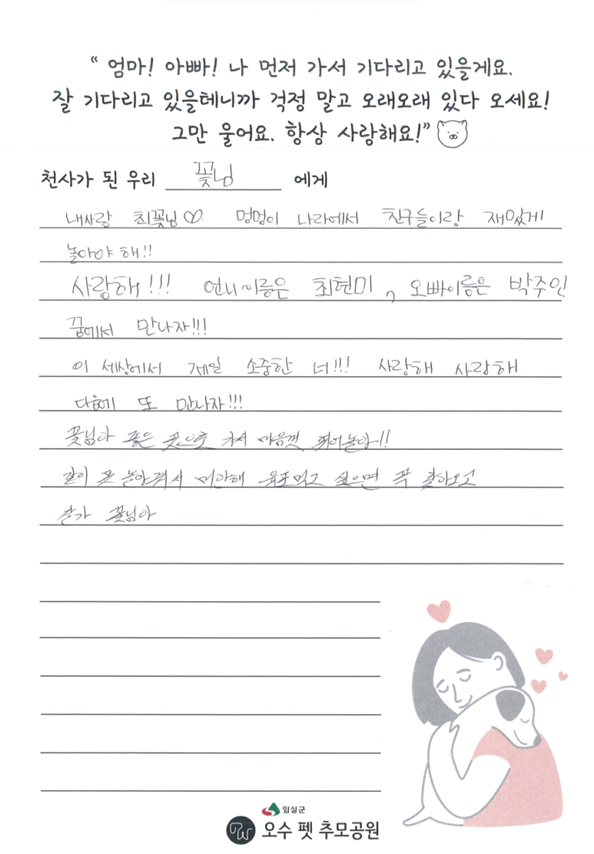 “ 엄마! 아빠! 나 먼저 가서 기다리고 있을게요.
잘 기다리고 있을테니까 걱정 말고 오래오래 있다 오세요!
그만 울어요. 항상 사랑해요!”
천사가 된 우리 꽃님 에게
내사랑 최꽃님♡ 멍멍이 나라에서 친구들이랑 재밌게
놀아야 해!!
사랑해!!! 언니이름은 최현미, 오빠이름은 박주인
꿈에서 만나자!!!
이 세상에서 제일 소중한 너!!! 사랑해 사랑해
다음에 또 만나자!!!
꽃님아 좋은 곳으로 가서 마음껏 뛰어놀아!!
같이 못 놀아줘서 미안해 육포먹고 싶으면 꼭 찾아오고
잘가 꽃님아
임실군
오수 펫 추모공원